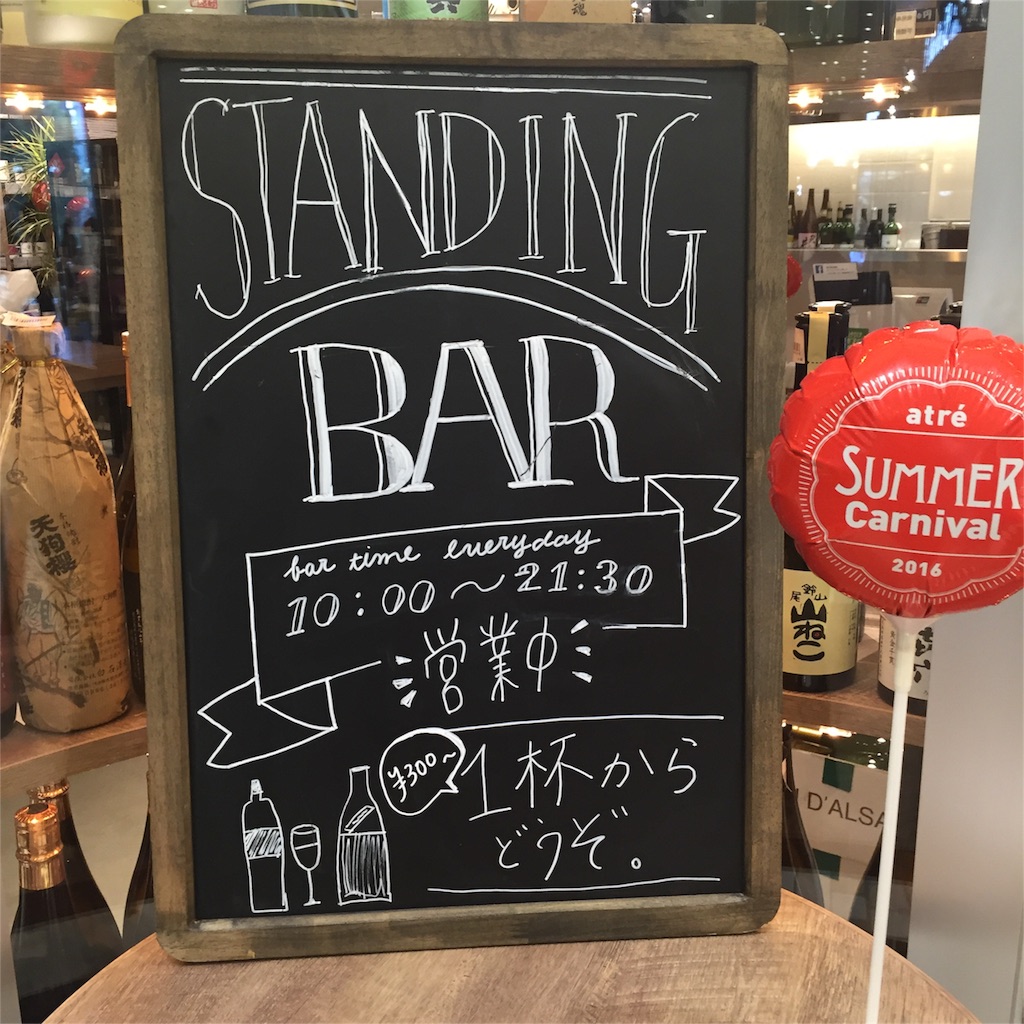 STANDING
BAR
bar time everyday
10:00～21:30
営業中
¥300～
1杯から
どうぞ。
atré
SUMMER
Carnival
2016
天狗櫻
尾鈴山
山ねこ
D'ALSA